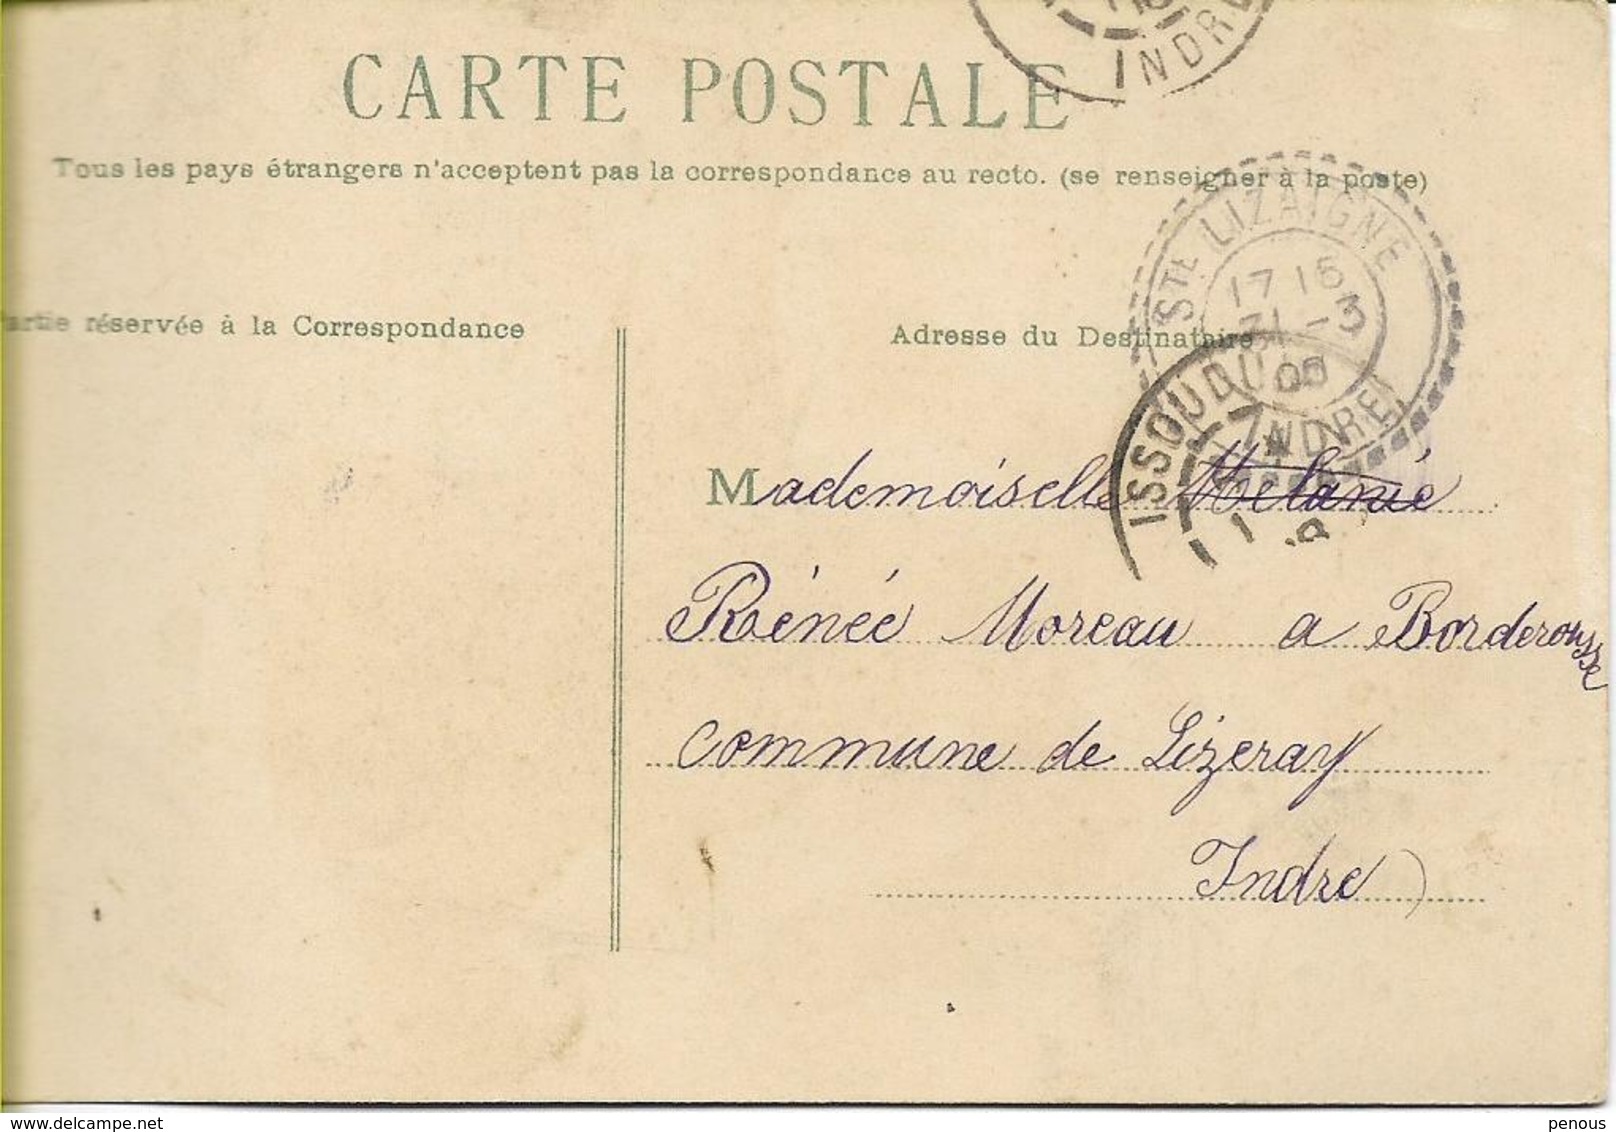 INDRE
CARTE POSTALE
Tous les pays étrangers n'acceptent pas la correspondance au recto. (se renseigner à la poste)
STE LIZAIGNE
17 15
31 -3
INDRE
Partie réservée à la Correspondance
Adresse du Destinataire
ISSOUDUN
1
Mademoiselle Melanie
Rénée Moreau a Borderousse
Commune de Lizeray
Indre)
delcampe.net
penous